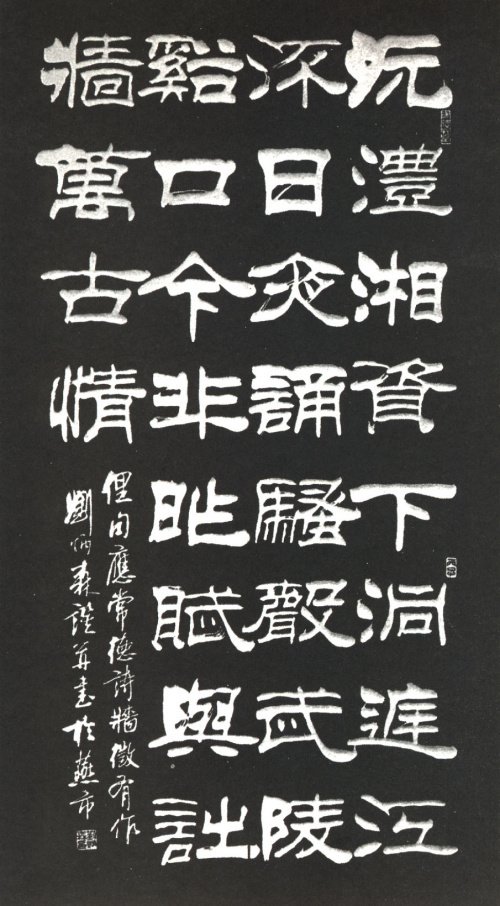 沅澧湘資下洞庭江
流日夜誦騷聲武陵
谿口今非昨賦與詩
牆萬古情
俚句應常德詩牆徵有作
劉炳森譔并書於燕市